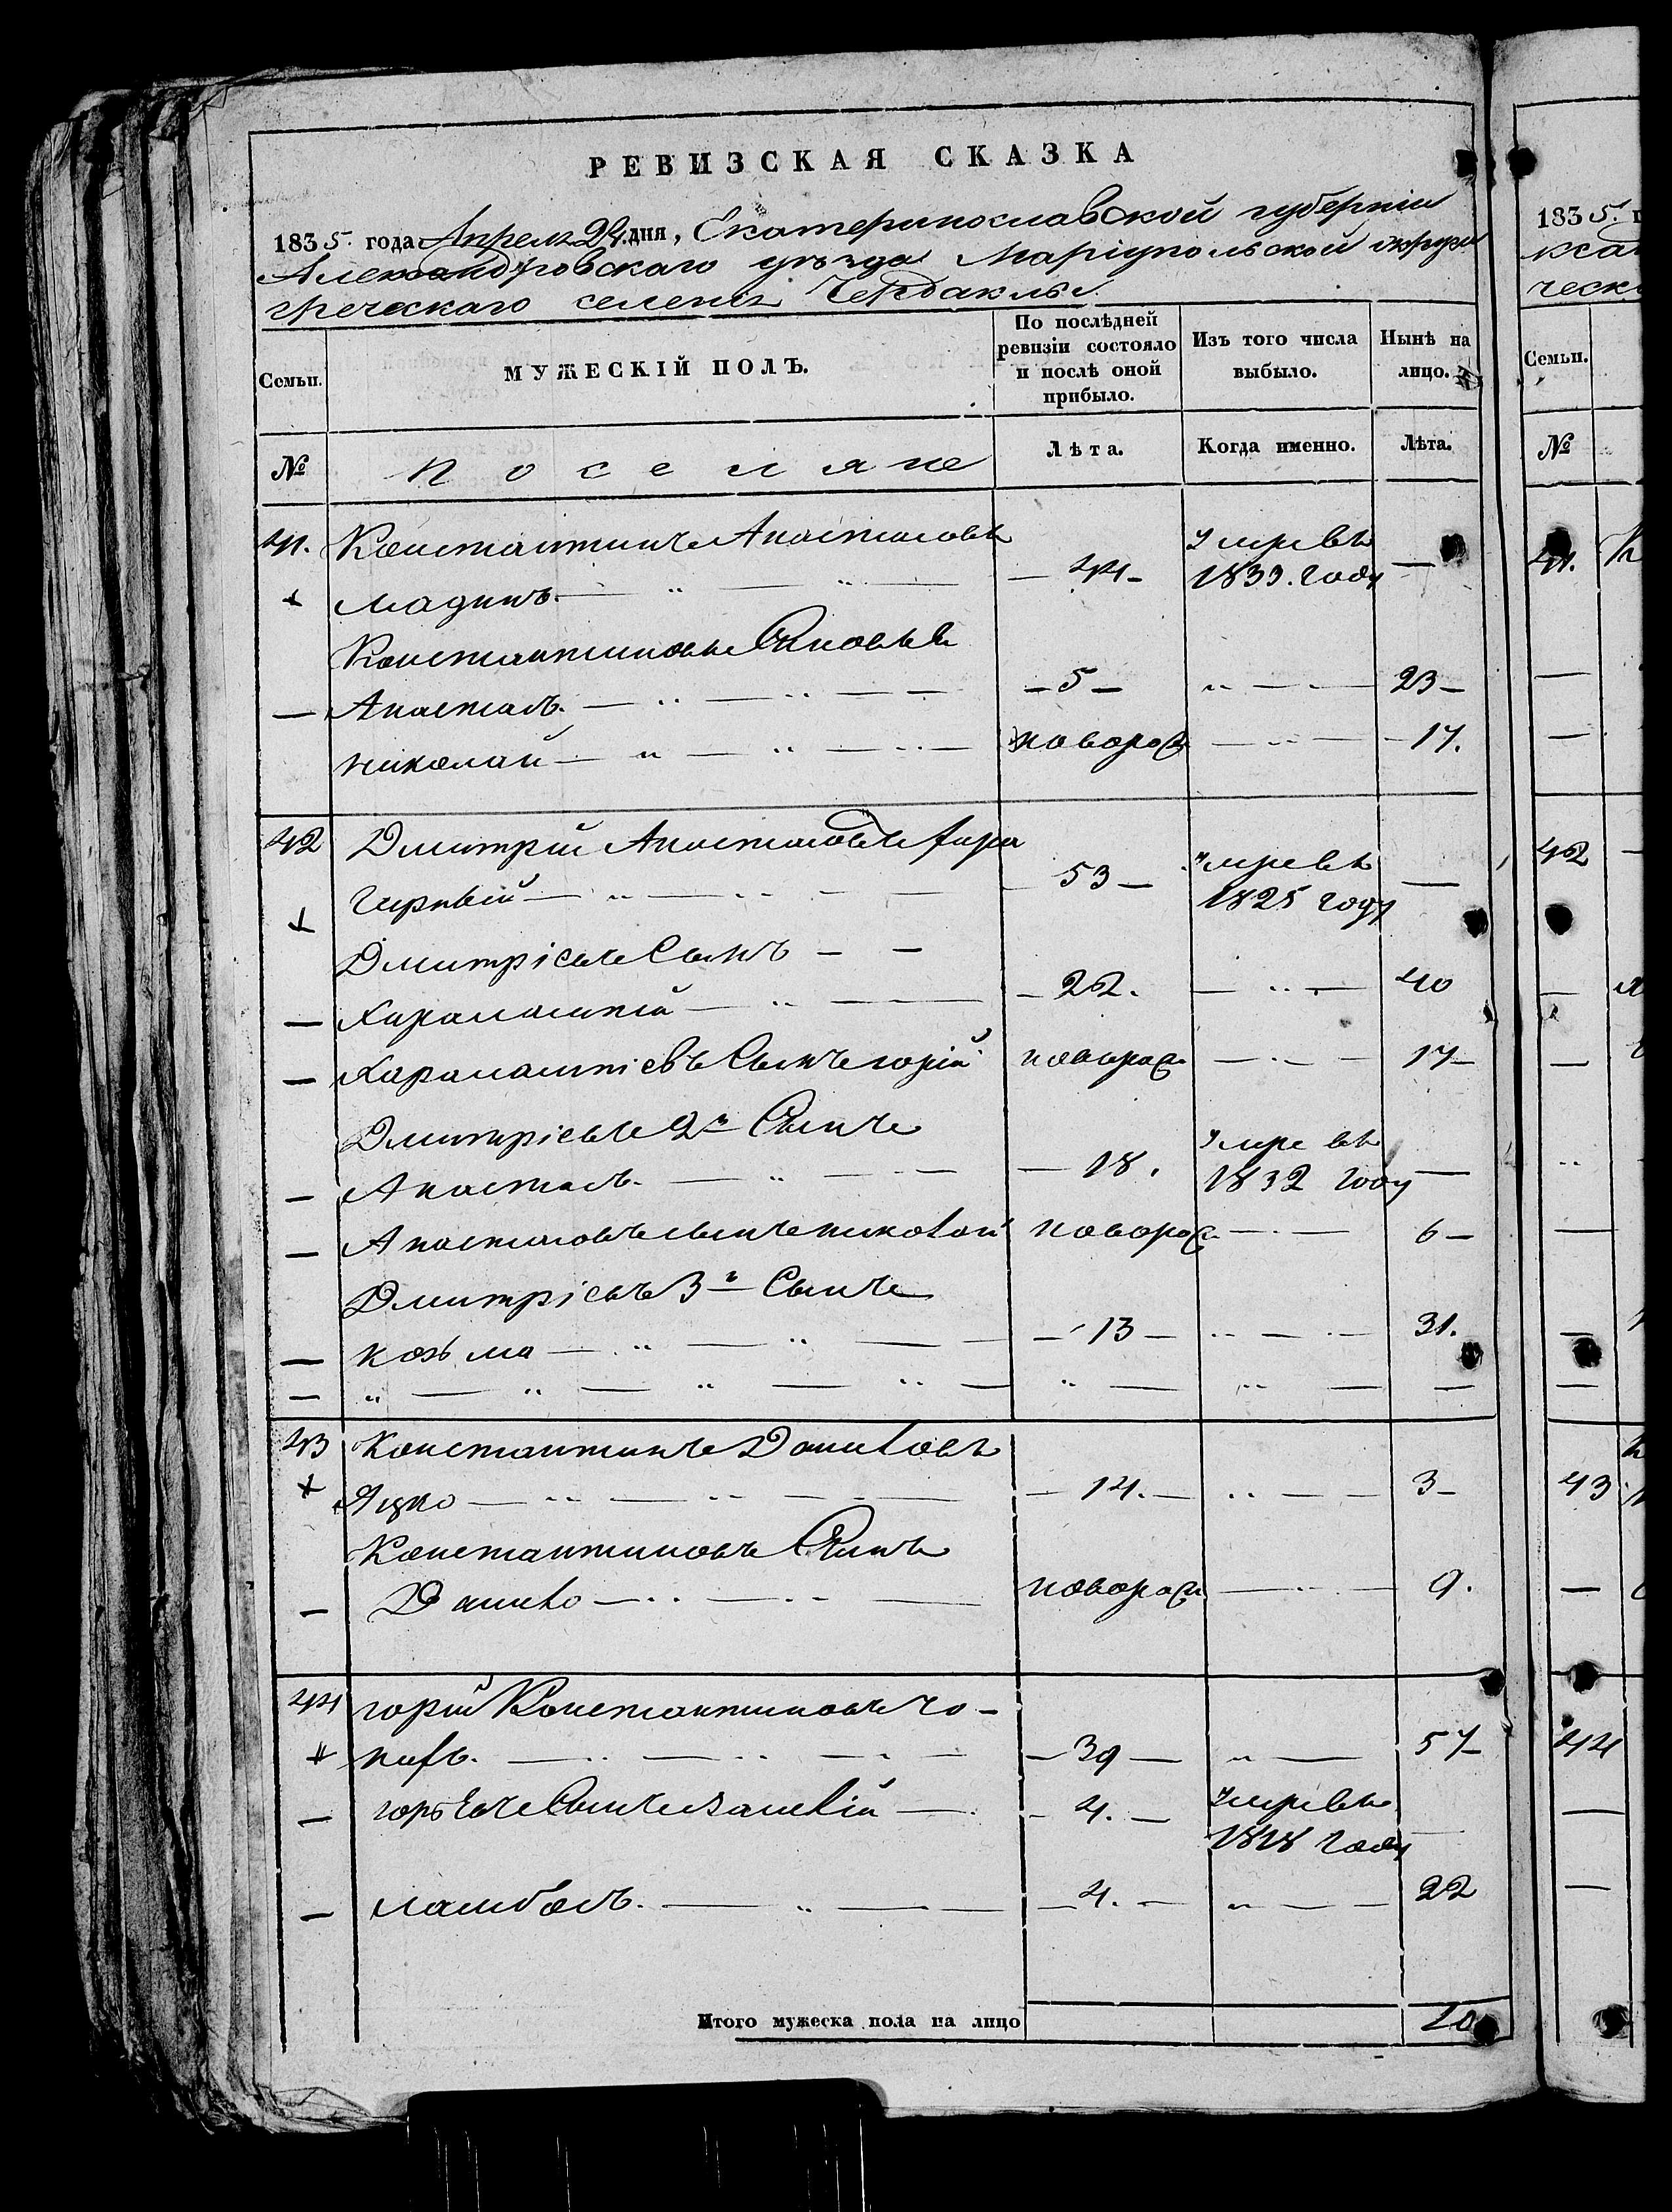 РЕВИЗСКАЯ СКАЗКА
1835. года Апреля 29. дня, Екатеринославской губерніи
Александровскаго уѣзда Маріупольской округи
греческаго селенія Чердаклы.
Семьи.
МУЖЕСКІЙ ПОЛЪ.
По послѣдней ревизіи состояло и послѣ оной прибыло.
Изъ того числа выбыло.
Нынѣ на лицо.
№
поселяне
Лѣта.
Когда именно.
Лѣта.
41. Константинъ Анастасовъ умре въ
— 44 — 1833. году —
Константиновы Сыновья
— Анастасъ. — 5 — 23 —
николай новорож — 17.
42 Дмитрій Анастасовъ
53 — умре въ 1825 году —
Дмитріевъ Сынъ
— Харалампій — 22. 40
— Харалампіевъ Сынъ юрій новорож 17 —
Дмитріевъ 2й Сынъ
— Анастасъ. — 18. умре въ 1832 году —
— Анастасовъ сынъ николай новорож 6 —
Дмитріевъ 3й Сынъ
— козьма — 13 — 31.
43 Константинъ Даниловъ
Яцко — 14. — 3 —
Константиновъ Сынъ
— Данило новорож 9.
44 юрій Константиновъ
— 39 — 57 —
Сынъ — 4. — умре въ
1818 году
— ламбосъ. — 4. — 22
Итого мужеска пола на лицо 10
1835. г
Семьи.
№
41.
42
43
44